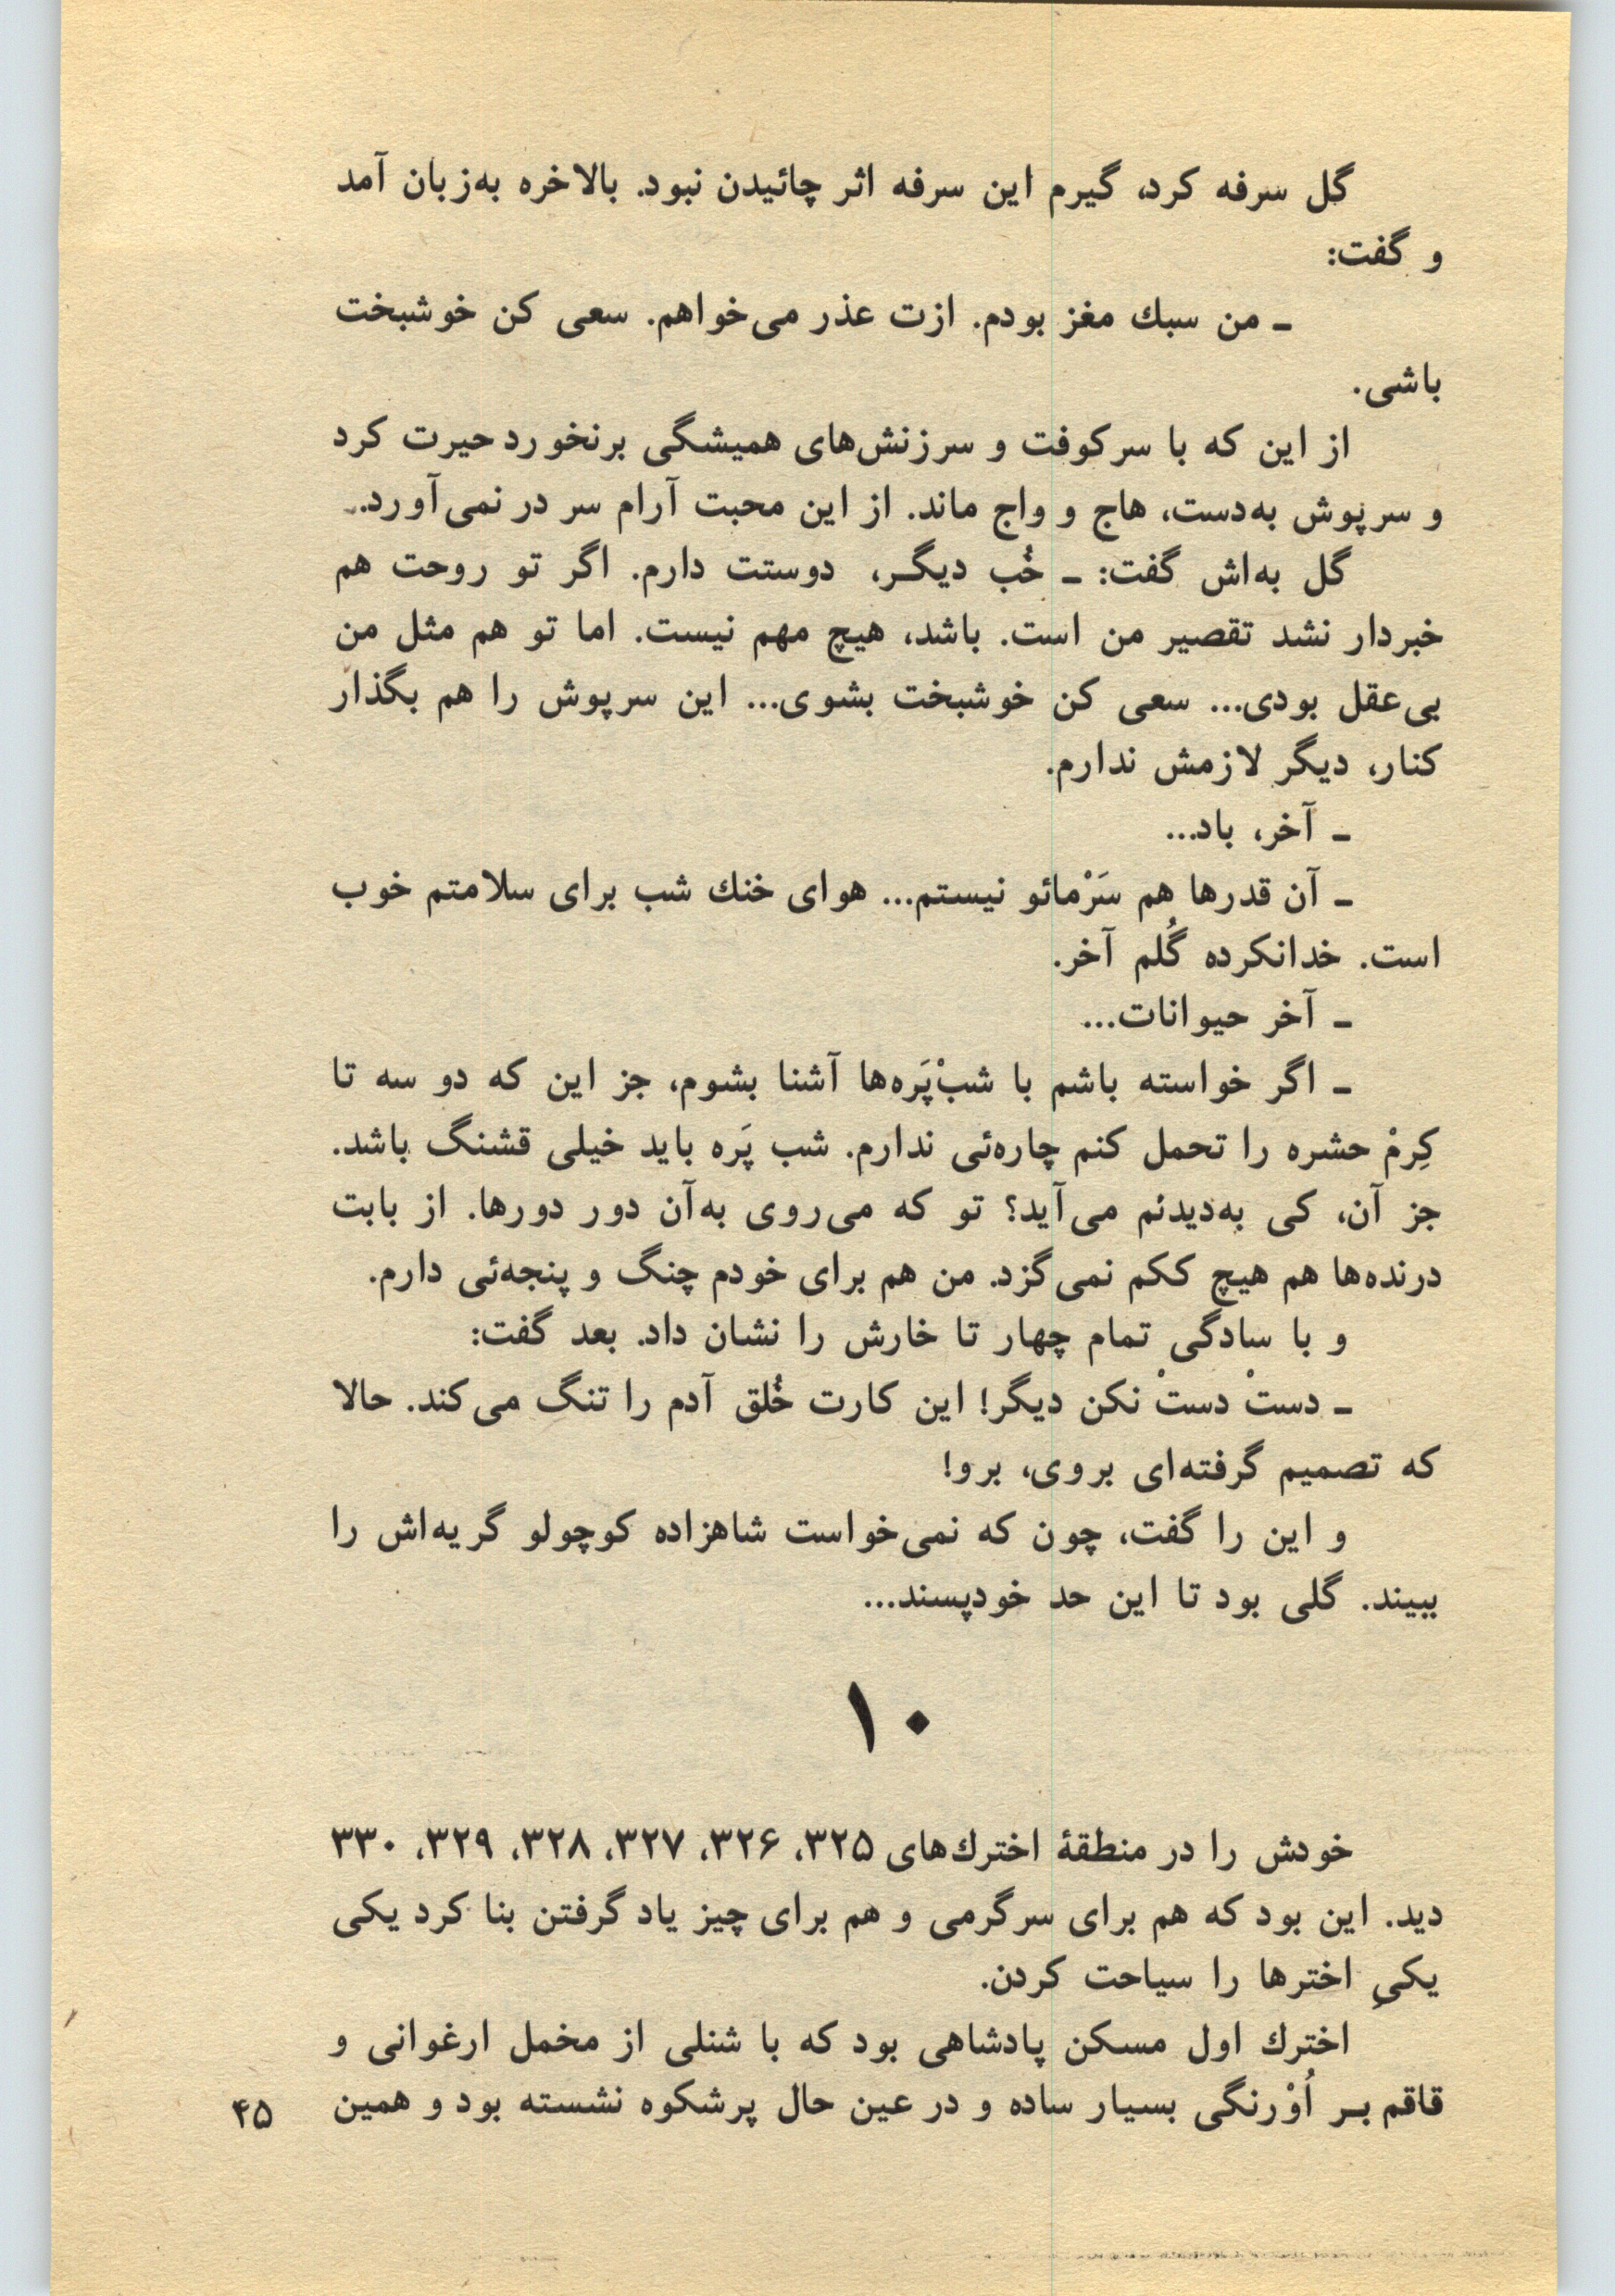 گل سرفه کرد، گیرم این سرفه اثر چائیدن نبود. بالاخره به‌زبان آمد
و گفت:
ـ من سبك مغز بودم. ازت عذر می‌خواهم. سعی کن خوشبخت
باشی.
از این که با سرکوفت و سرزنش‌های همیشگی برنخورد حیرت کرد
و سرپوش به‌دست، هاج و واج ماند. از این محبت آرام سر در نمی‌آورد.
گل به‌اش گفت: ـ خُب دیگـر، دوستت دارم. اگر تو روحت هم
خبردار نشد تقصیر من است. باشد، هیچ مهم نیست. اما تو هم مثل من
بی‌عقل بودی... سعی کن خوشبخت بشوی... این سرپوش را هم بگذار
کنار، دیگر لازمش ندارم.
ـ آخر، باد...
ـ آن قدرها هم سَرْمائو نیستم... هوای خنك شب برای سلامتم خوب
است. خدانکرده گُلم آخر.
ـ آخر حیوانات...
ـ اگر خواسته باشم با شبْ‌پَره‌ها آشنا بشوم، جز این که دو سه تا
کِرمْ حشره را تحمل کنم چاره‌ئی ندارم. شب پَره باید خیلی قشنگ باشد.
جز آن، کی به‌دیدنم می‌آید؟ تو که می‌روی به‌آن دور دورها. از بابت
درنده‌ها هم هیچ ککم نمی‌گزد. من هم برای خودم چنگ و پنجه‌ئی دارم.
و با سادگی تمام چهار تا خارش را نشان داد. بعد گفت:
ـ دستْ دستْ نکن دیگر! این کارت خُلق آدم را تنگ می‌کند. حالا
که تصمیم گرفته‌ای بروی، برو!
و این را گفت، چون که نمی‌خواست شاهزاده کوچولو گریه‌اش را
ببیند. گلی بود تا این حد خودپسند...
۱۰
خودش را در منطقهٔ اخترك‌های ۳۲۵، ۳۲۶، ۳۲۷، ۳۲۸، ۳۲۹، ۳۳۰
دید. این بود که هم برای سرگرمی و هم برای چیز یاد گرفتن بنا کرد یکی
یکیِ اخترها را سیاحت کردن.
اخترك اول مسکن پادشاهی بود که با شنلی از مخمل ارغوانی و
قاقم بـر اُوْرنگی بسیار ساده و در عین حال پرشکوه نشسته بود و همین
۴۵